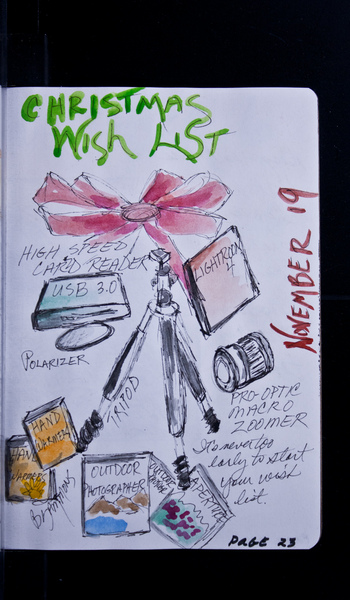 CHRISTMAS
WISH LIST
NOVEMBER 19
HIGH SPEED
CARD READER
USB 3.0
LIGHTROOM
4
POLARIZER
TRIPOD
PRO-OPTIC
MACRO
ZOOMER
HAND
WARMERS
HAND
WARMERS
OUTDOOR
PHOTOGRAPHER
OUTDOOR
APERTURE
It's never too
early to start
your wish
list.
PAGE 23